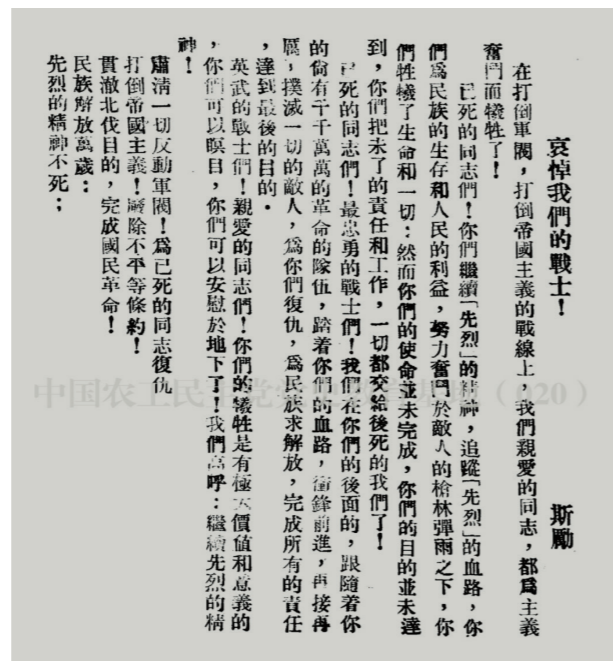 哀悼我們的戰士!
斯勵
在打倒軍閥,打倒帝國主義的戰線上,我們親愛的同志,都爲主義
奮鬥而犧牲了!
已死的同志們!你們繼續「先烈」的精神,追蹤「先烈」的血路,你
們爲民族的生存和人民的利益,努力奮鬥於敵人的槍林彈雨之下,你
們牲犧了生命和一切:然而你們的使命並未完成,你們的目的並未達
到,你們把未了的責任和工作,一切都交給後死的我們了!
已死的同志們!最忠勇的戰士們!我們在你們的後面的,跟隨着你
的尙有千千萬萬的革命的隊伍,踏着你們的血路,衝鋒前進,再接再
厲,撲滅一切的敵人,爲你們復仇,爲民族求解放,完成所有的責任
,達到最後的目的.
英武的戰士們!親愛的同志們!你們的犧牲是有極大價值和意義的
,你們可以瞑目,你們可以安慰於地下了!我們高呼:繼續先烈的精
神!
肅清一切反動軍閥!爲已死的同志復仇
打倒帝國主義!廢除不平等條約!
貫澈北伐目的,完成國民革命!
民族解放萬歲:
先烈的精神不死;
中国农工民主党
(020)